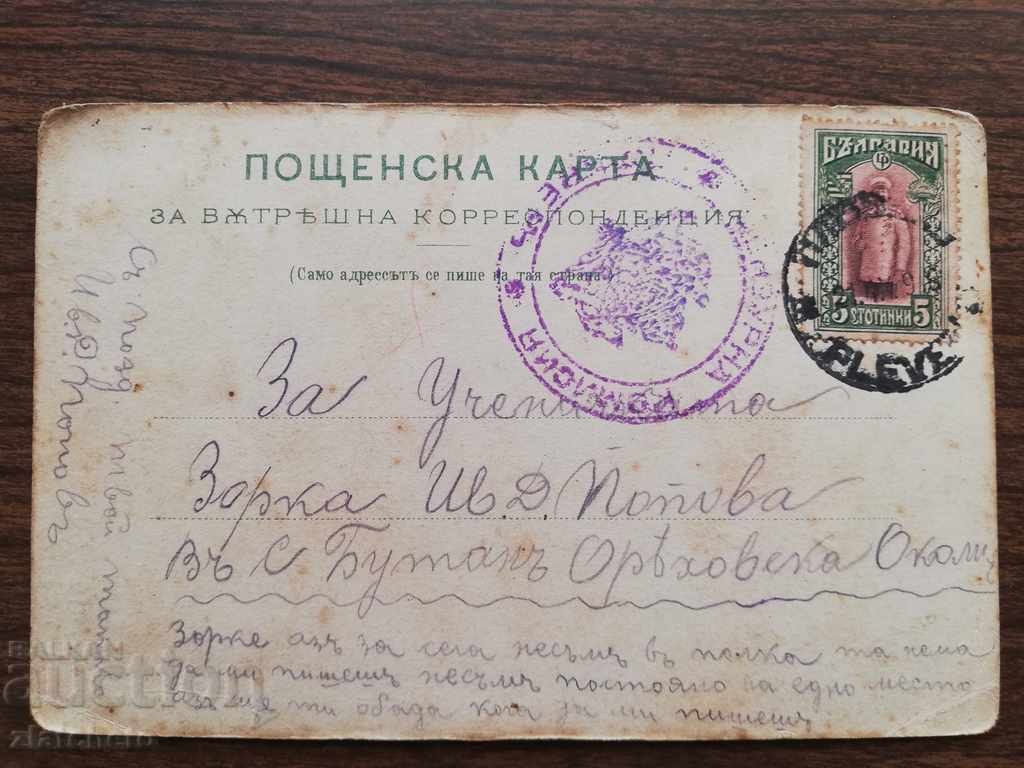 ПОЩЕНСКА КАРТА
ЗА ВѪТРѢШНА КОРРЕСПОНДЕНЦИЯ
(Само адрессътъ се пише на тая страна.)
БЪЛГАРИЯ
5 СТОТИНКИ 5
PLEVE
ЦЕНЗУРНА КОМИСИЯ
За Ученичката
Зорка Ив. Д. Попова
Въ С Бутанъ Орѣховска Околи
Зорке азъ за сега несъмъ въ полка та нема
да ми пишешъ несъмъ постояно на едно место
азъ ще ти обада кога да ми пишешъ
Съ позд. твой татко
Ив. Д. Поповъ
BALKAN
auction
zlatcheto